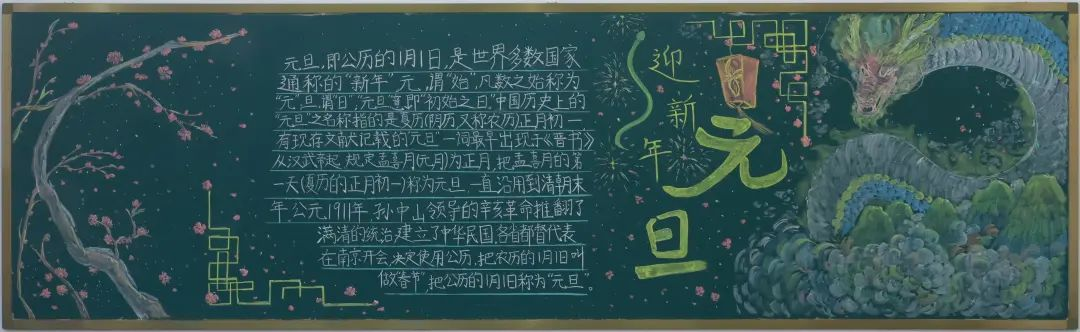 元旦,即公历的1月1日,是世界多数国家
通称的“新年”元,谓“始”,凡数之始称为
“元”,旦,谓“日”,“元旦”意即“初始之日”.中国历史上的
“元旦”之名称指的是夏历(阴历又称农历)正月初一
有现存文献记载的“元旦”一词最早出现于《晋书》
从汉武帝起,规定孟喜月(元月)为正月,把孟喜月的第
一天(夏历的正月初一)称为元旦,一直沿用到清朝末
年,公元1911年,孙中山领导的辛亥革命推翻了
满清的统治,建立了中华民国.各省都督代表
在南京开会,决定使用公历,把农历的1月1日叫
做“春节”,把公历的1月1日称为“元旦”。
迎新年
元旦